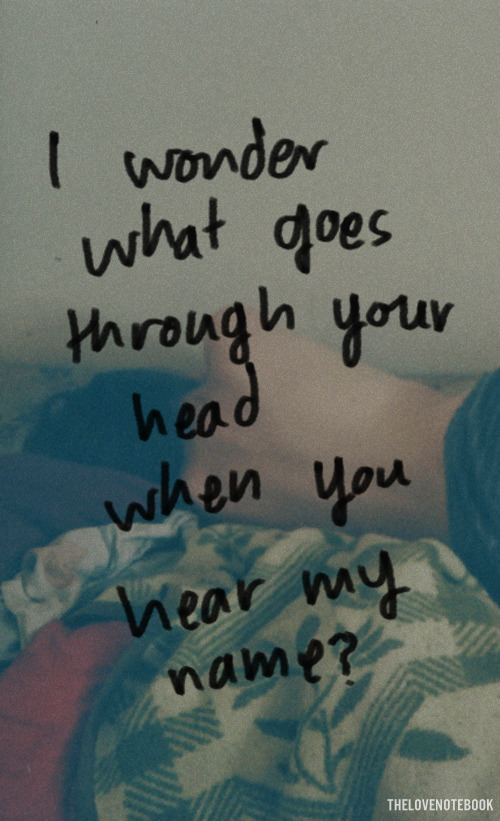 I wonder
what goes
through your
head
when you
hear my
name?
THELOVENOTEBOOK